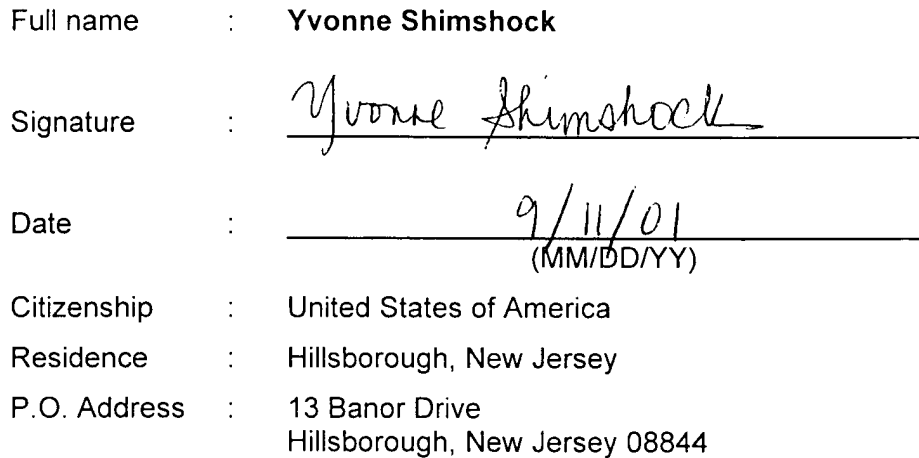 Full name : Yvonne Shimshock
Signature : Yvonne Shimshock
Date : 9/11/01
(MM/DD/YY)
Citizenship : United States of America
Residence : Hillsborough, New Jersey
P.O. Address : 13 Banor Drive
Hillsborough, New Jersey 08844